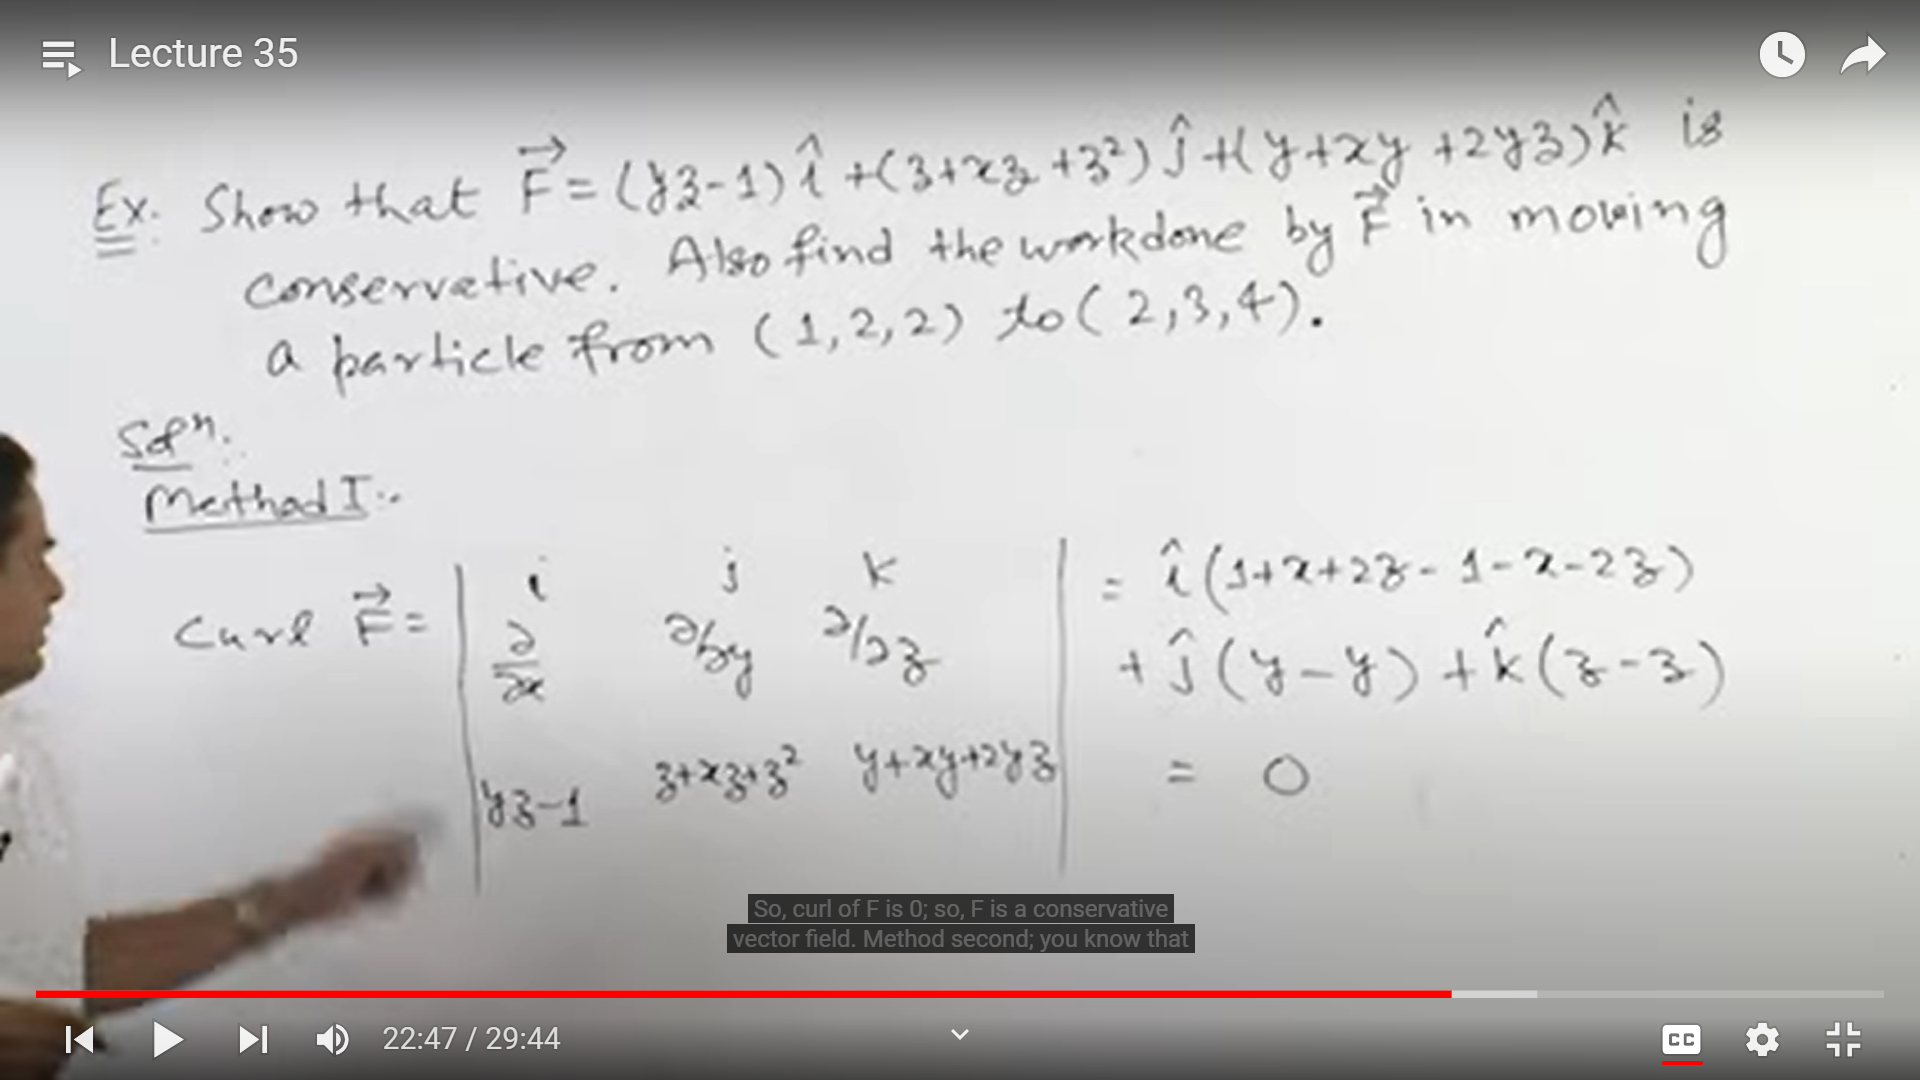 Lecture 35
Ex. Show that F⃗ = (yz-1) î + (z+xz+z²) ĵ + (y+xy+2yz) k̂ is
conservative. Also find the workdone by F⃗ in moving
a particle from (1,2,2) to (2,3,4).
Solⁿ.
Method I :-
i j k = î (1+x+2z-1-x-2z)
Curl F⃗ = ∂/∂x ∂/∂y ∂/∂z + ĵ (y-y) + k̂ (z-z)
yz-1 z+xz+z² y+xy+2yz = 0
So, curl of F is 0; so, F is a conservative
vector field. Method second; you know that
22:47 / 29:44
CC